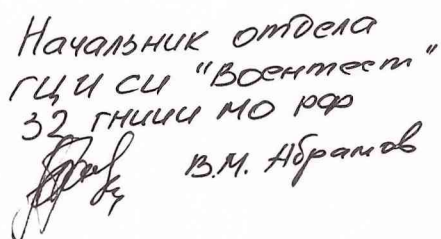 Начальник отдела
ГЦИ СИ "Воентест"
32 ГНИИИ МО РФ
В.М. Абрамов